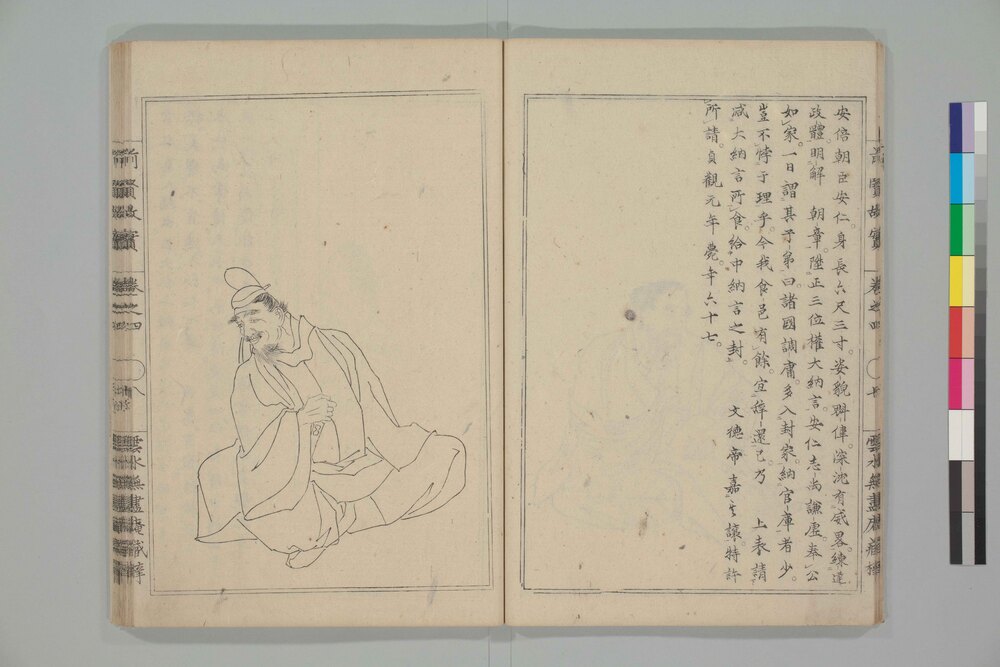 安倍朝臣安仁。身長六尺三寸。姿貌瓌偉。深沈有威畧。練達
政體。明解 朝章。陞正三位權大納言。安仁志尚謙虛。奉公
如家。一日謂其子弟曰諸國調庸多入封家。納官庫者少。
豈不悖于理乎。今我食邑有餘。宜辭還已乃 上表請
減大納言所食。給中納言之封。 文德帝嘉其讓特許
所請。貞觀元年薨。年六十七。
前賢故實 卷之四
雲水無盡庵藏梓
前賢故實 卷之四
雲水無盡庵藏梓